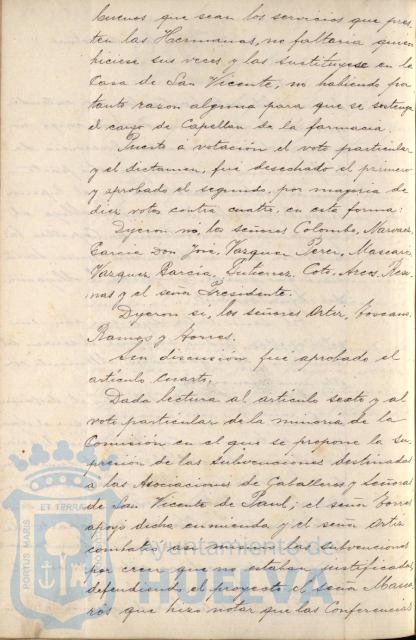 buenos que sean los servicios que pres-
ten las Hermanas, no faltaria quien
hiciese sus veces y las sustituyese en la
Casa de San Vicente, no habiendo por
tanto razon alguna para que se sostenga
el cargo de Capellan de la farmacia.
Puesto a votación el voto particular
y el dictamen, fue desechado el primero
y aprobado el segundo, por mayoria de
diez votos contra cuatro, en esta forma:
Dijeron no, los señores Colombo, Narvaez,
Garcia Don José, Vazquez Perez, Mascaros,
Vazquez Garcia, Gutierrez, Coto, Arcos,
mas y el señor Presidente.
Dijeron si, los señores Ortiz,
Ramos y Torres.
Sin discusión fué aprobado el
articulo cuarto.
Dada lectura al articulo sexto y al
voto particular de la minoria de la
Comisión en el que se propone la su-
presion de las subvenciones destinadas
a las Asociaciones de Caballeros y señoras
de San Vicente de Paul; el señor Torres
apoyó dicha enmienda y el señor Ortiz
combatió asi como las subvenciones
por creer que no estaban justificadas,
defendiendo el proyecto el señor Masca-
rós que hizo notar que las Conferencias
ET TERRAE
PORTUS MARIS
Ayuntamiento de
HUELVA